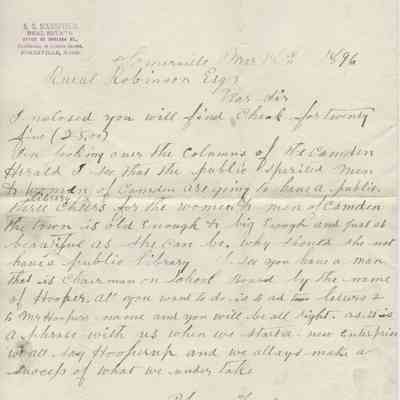 S. S. MANSFIELD
REAL ESTATE
SOMERVILLE, MASS.
Somerville, Mar 1896
Rueal Robinson Esqr
Dear Sir
I nclosed you will find Cheak for twenty
five (25.00)
On looking over the columns of the Camden
Herald I see that the public spirited Men
& women of Camden are going to have a public
library
three cheers for the women & men of Camden
the town is old enough & big Enough and just as
beautiful as she can be. why should she not
have a public library I see you have a man
that is Chairman on School Board by the name
of Hooper. all you want to do is to ad two letters
to Mr Hooper name and you will be all right. as is is
a phrase with us when we start a new Enterprise
we all say Hooperup and we allays make a
sweep of what we under take